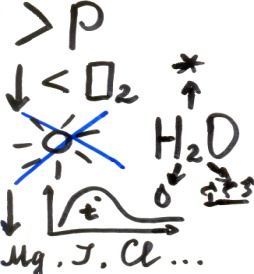 > P
↓ < O₂
H₂O
t°
Mg. J. Cl ...